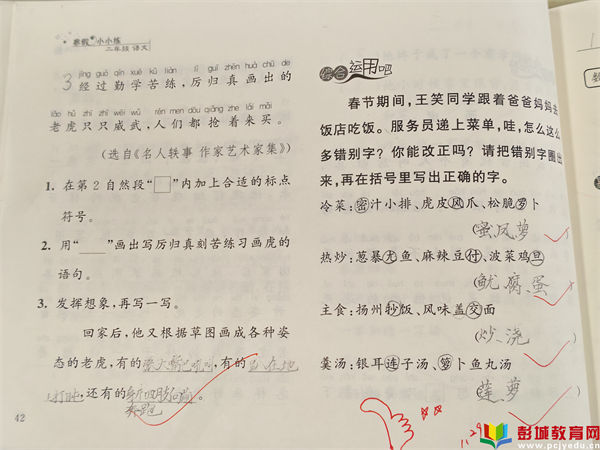 寒假小小练
二年级 语文
jīng guò qín xué kǔ liàn lì guī zhēn huà chū de
3 经过勤学苦练，厉归真画出的
lǎo hǔ zhī zhī wēi wǔ rén men dōu qiǎng zhe lái mǎi
老虎只只威武，人们都抢着来买。
（选自《名人轶事 作家艺术家集》）
1. 在第2自然段“□”内加上合适的标点
符号。
2. 用“____”画出写厉归真刻苦练习画虎的
语句。
3. 发挥想象，再写一写。
回家后，他又根据草图画成各种姿
态的老虎，有的张大嘴巴吼叫，有的趴在地
上打盹，还有的
奔跑。
42
综合运用吧
春节期间，王笑同学跟着爸爸妈妈去
饭店吃饭。服务员递上菜单，哇，怎么这么
多错别字？你能改正吗？请把错别字圈出
来，再在括号里写出正确的字。
冷菜：密汁小排、虎皮风爪、松脆萝卜
（蜜凤萝）
热炒：葱暴尤鱼、麻辣豆付、菠菜鸡旦
（鱿、腐、蛋）
主食：扬州钞饭、风味盖交面
（炒、浇）
羹汤：银耳连子汤、箩卜鱼丸汤
（莲、萝）
彭城教育网
www.pcjyedu.cn